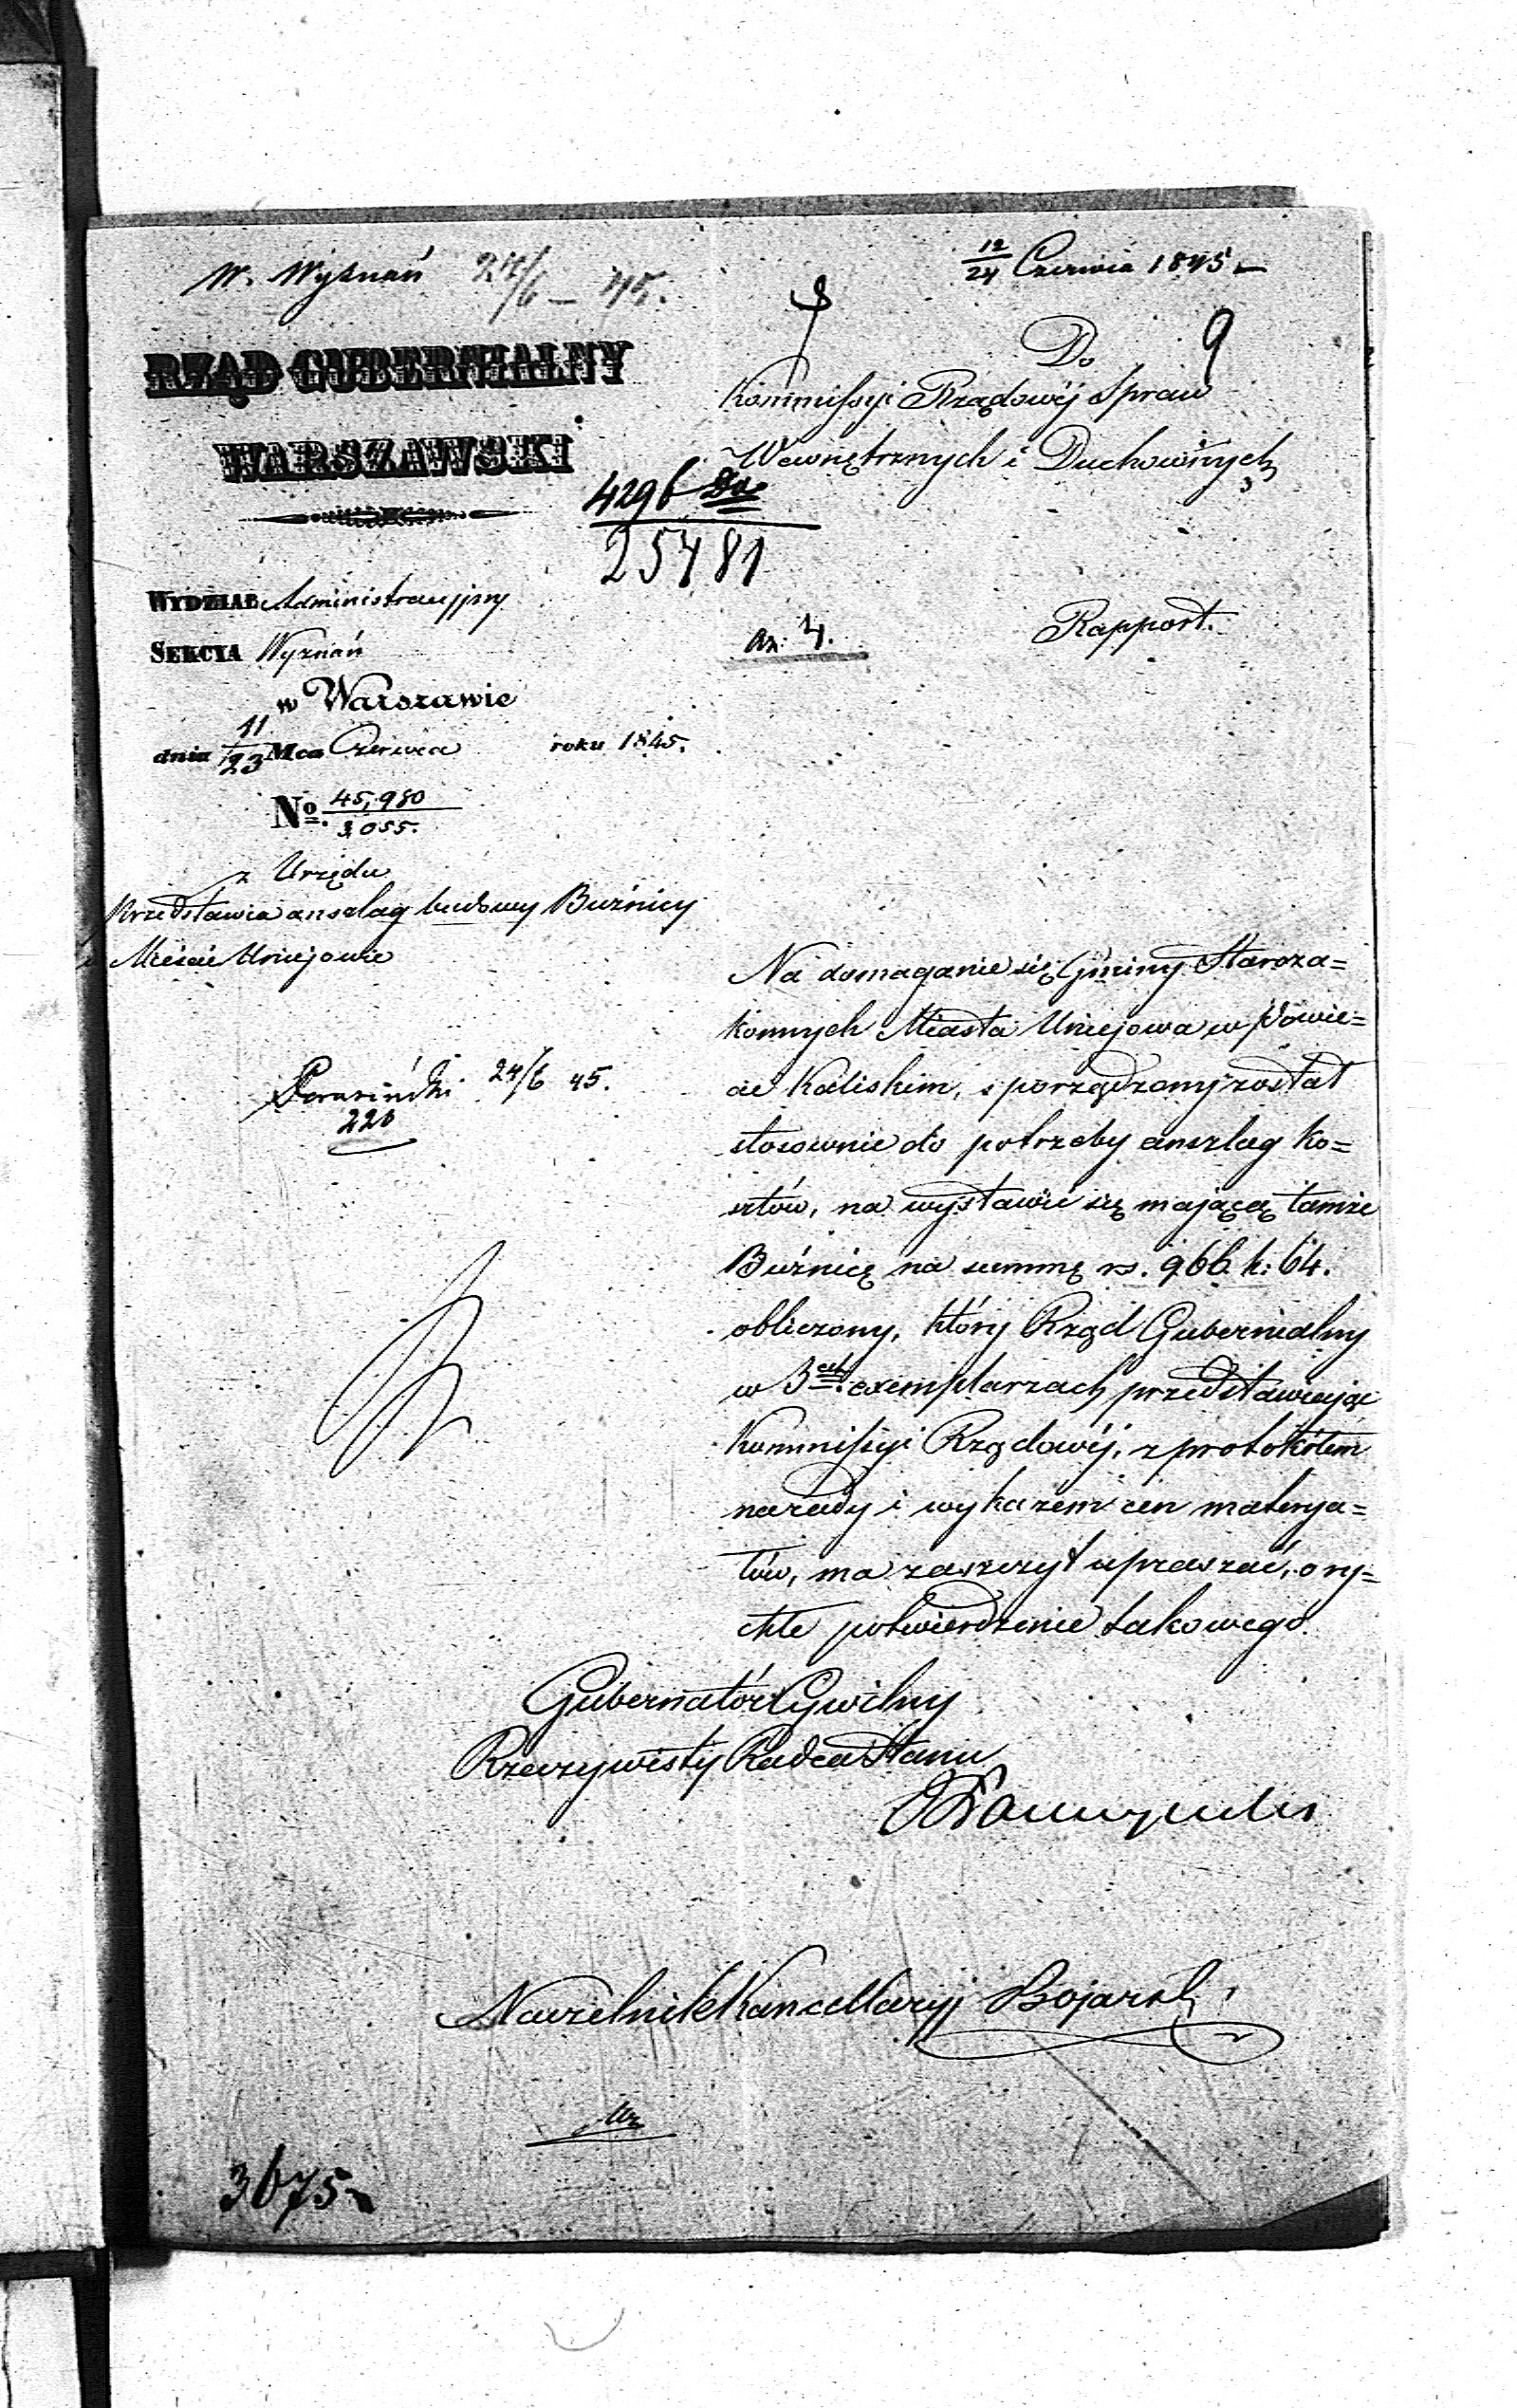 12/24 Czerwca 1845
W. Wyznań 24/6 – 45.
9
RZĄD GUBERNIALNY
WARSZAWSKI
Do
Kommissyi Rządowéj Spraw
Wewnętrznych i Duchownych
4296
25481
WYDZIAŁ Administracyjny
SEKCYA Wyznań
w Warszawie
dnia 11/23 Mca Czerwca roku 1845.
No. 45,980/3055.
4.
Rapport.
z Urzędu
Przedstawia anszlag budowy Buźnicy
w Mieście Uniejowie
24/6 45.
220
Na domaganie się Gminy Staroza=
konnych Miasta Uniejowa w Powie=
cie Kaliskim, sporządzony został
stosownie do potrzeby anszlag ko=
sztów, na wystawić się mającą tamże
Buźnicę na summę rs. 966. k: 64.
obliczony, który Rząd Gubernialny
w 3ch exemplarzach przedstawiając
Kommissyi Rządowéj, z protokółem
narady i wykazem cen materya=
łów, ma zaszczyt upraszać, o ry=
chłe potwierdzenie takowego.
Gubernator Cywilny
Rzeczywisty Radca Stanu
Naczelnik Kancellaryj Bojarsk
3675